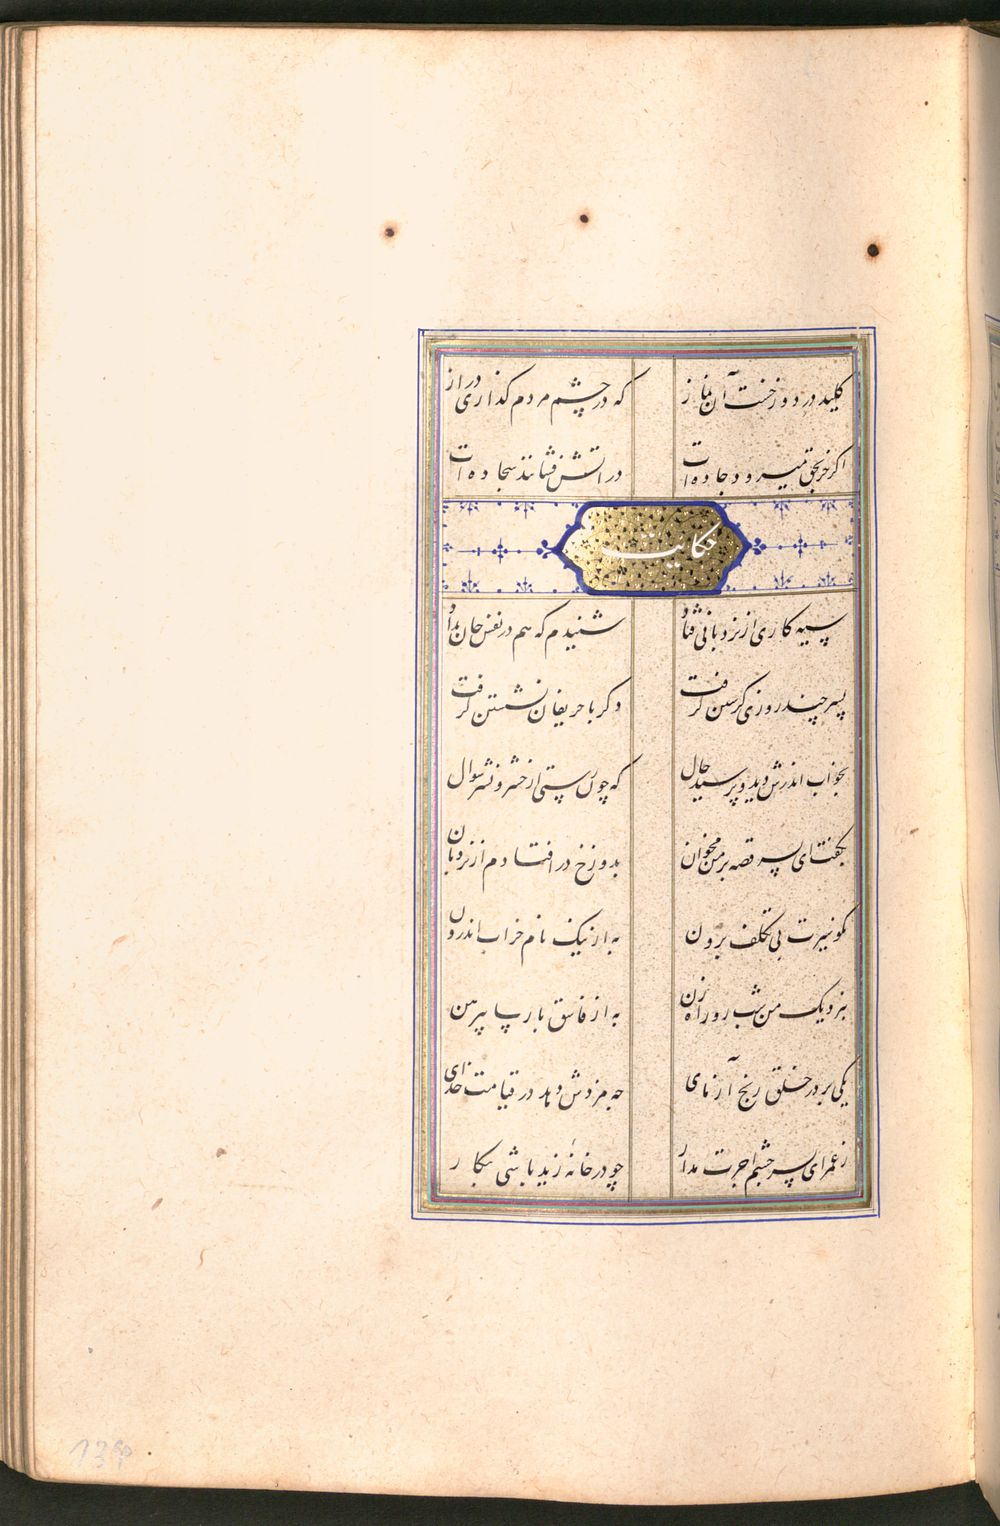 کلید در دوزخست آن نماز که در چشم مردم گذاری دراز
اگر جز بحق میرود جاده‌ات در آتش فشانند سجاده‌ات
حکایت
سیه کاری از نردبانی فتاد شنیدم که هم در نفس جان بداد
پسر چند روزی گرستن گرفت دگر با حریفان نشستن گرفت
بخواب اندرش دید و پرسید حال که چون رستی از حشر و نشر و سوال
بگفت ای پسر قصه بر من مخوان بدوزخ در افتادم از نردبان
نکو سیرت بی تکلف برون به از نیک نام خراب اندرون
بنزدیک من شب رو راه زن به از فاسق پارسا پیرهن
یکی بر در خلق رنج آزمای چه مزدش دهد در قیامت خدای
ز عمرو ای پسر چشم اجرت مدار چو در خانه زید باشی بکار